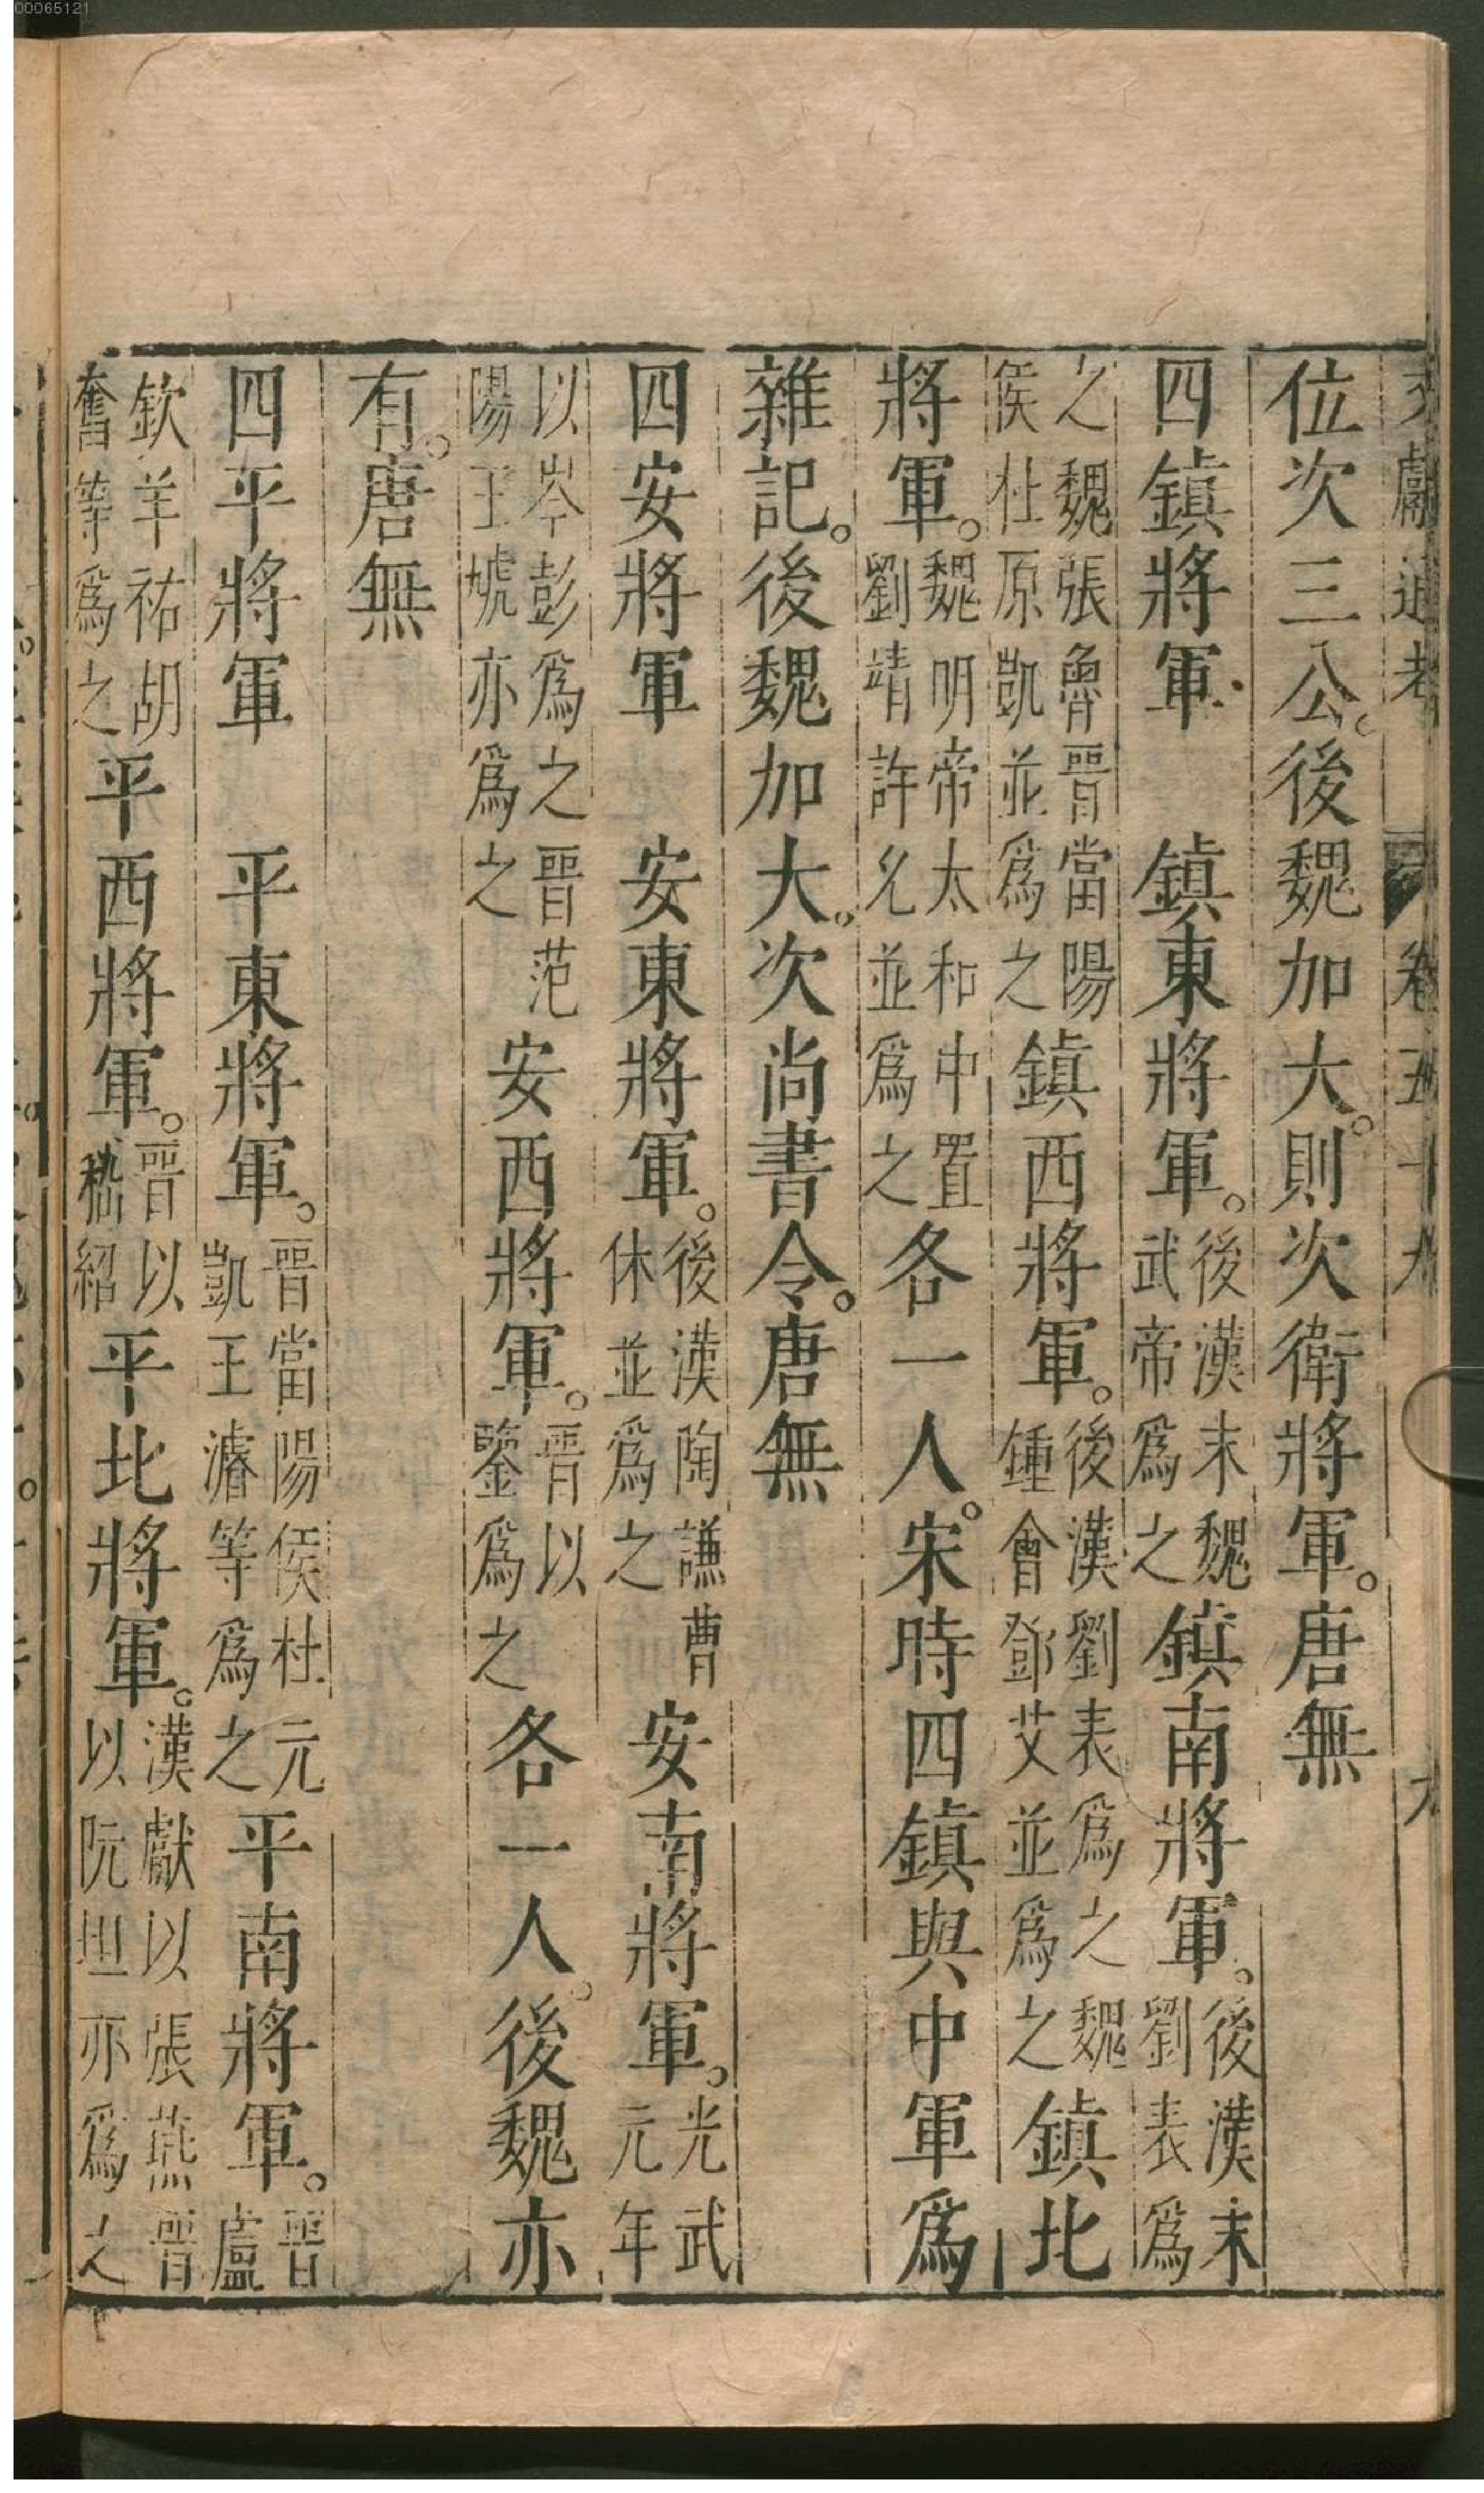 00065121
文獻通考 卷五十九 九
位次三公。後魏加大。則次衛將軍。唐無
四鎮將軍 鎮東將軍。後漢末魏武帝為之鎮南將軍。後漢末劉表為
之魏張魯晉當陽侯杜原凱並為之鎮西將軍。後漢劉表為之魏鍾會鄧艾並為之鎮北
將軍。魏明帝太和中置劉靖許允並為之各一人。宋時四鎮與中軍為
雜記。後魏加大。次尚書令。唐無
四安將軍 安東將軍。後漢陶謙曹休並為之安南將軍。光武元年
以岑彭為之晉范陽王虓亦為之安西將軍。晉以鑒為之各一人。後魏亦
有。唐無
四平將軍 平東將軍。晉當陽侯杜元凱王濬等為之平南將軍。晉盧
欽羊祜胡奮等為之平西將軍。晉以嵇紹平北將軍。漢獻以張燕晉以阮坦亦為之